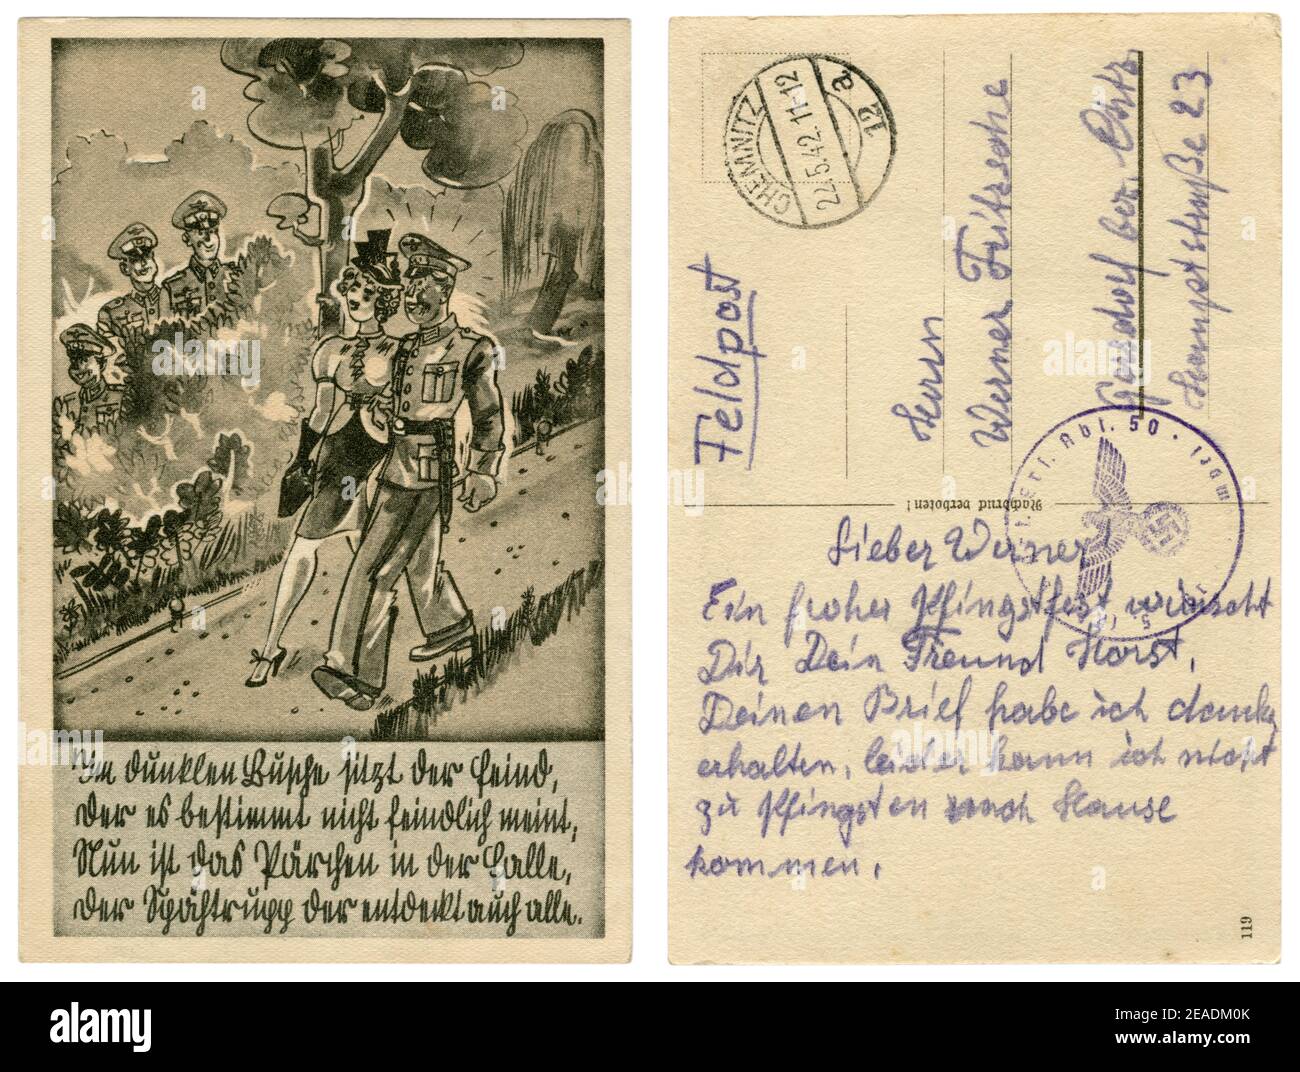 Im dunklen Busche sitzt der Feind,
der es bestimmt nicht feindlich meint,
Nun ist das Pärchen in der Falle,
der Spähtrupp der entdeckt auch alle.
CHEMNITZ
22.5.42.11-12
12
a
Feldpost
Herrn
Werner Fritzsche
Gersdorf bez. Chtz.
Hauptstraße 23
Abt. 50
Nachdruck verboten!
Lieber Werner!
Ein froher Pfingstfest wünscht
Dir Dein Freund Horst.
Deinen Brief habe ich dankg
erhalten, leider kann ich nicht
zu Pfingsten nach Hause
kommen.
119
alamy
Image ID: 2EADM0K
www.alamy.com